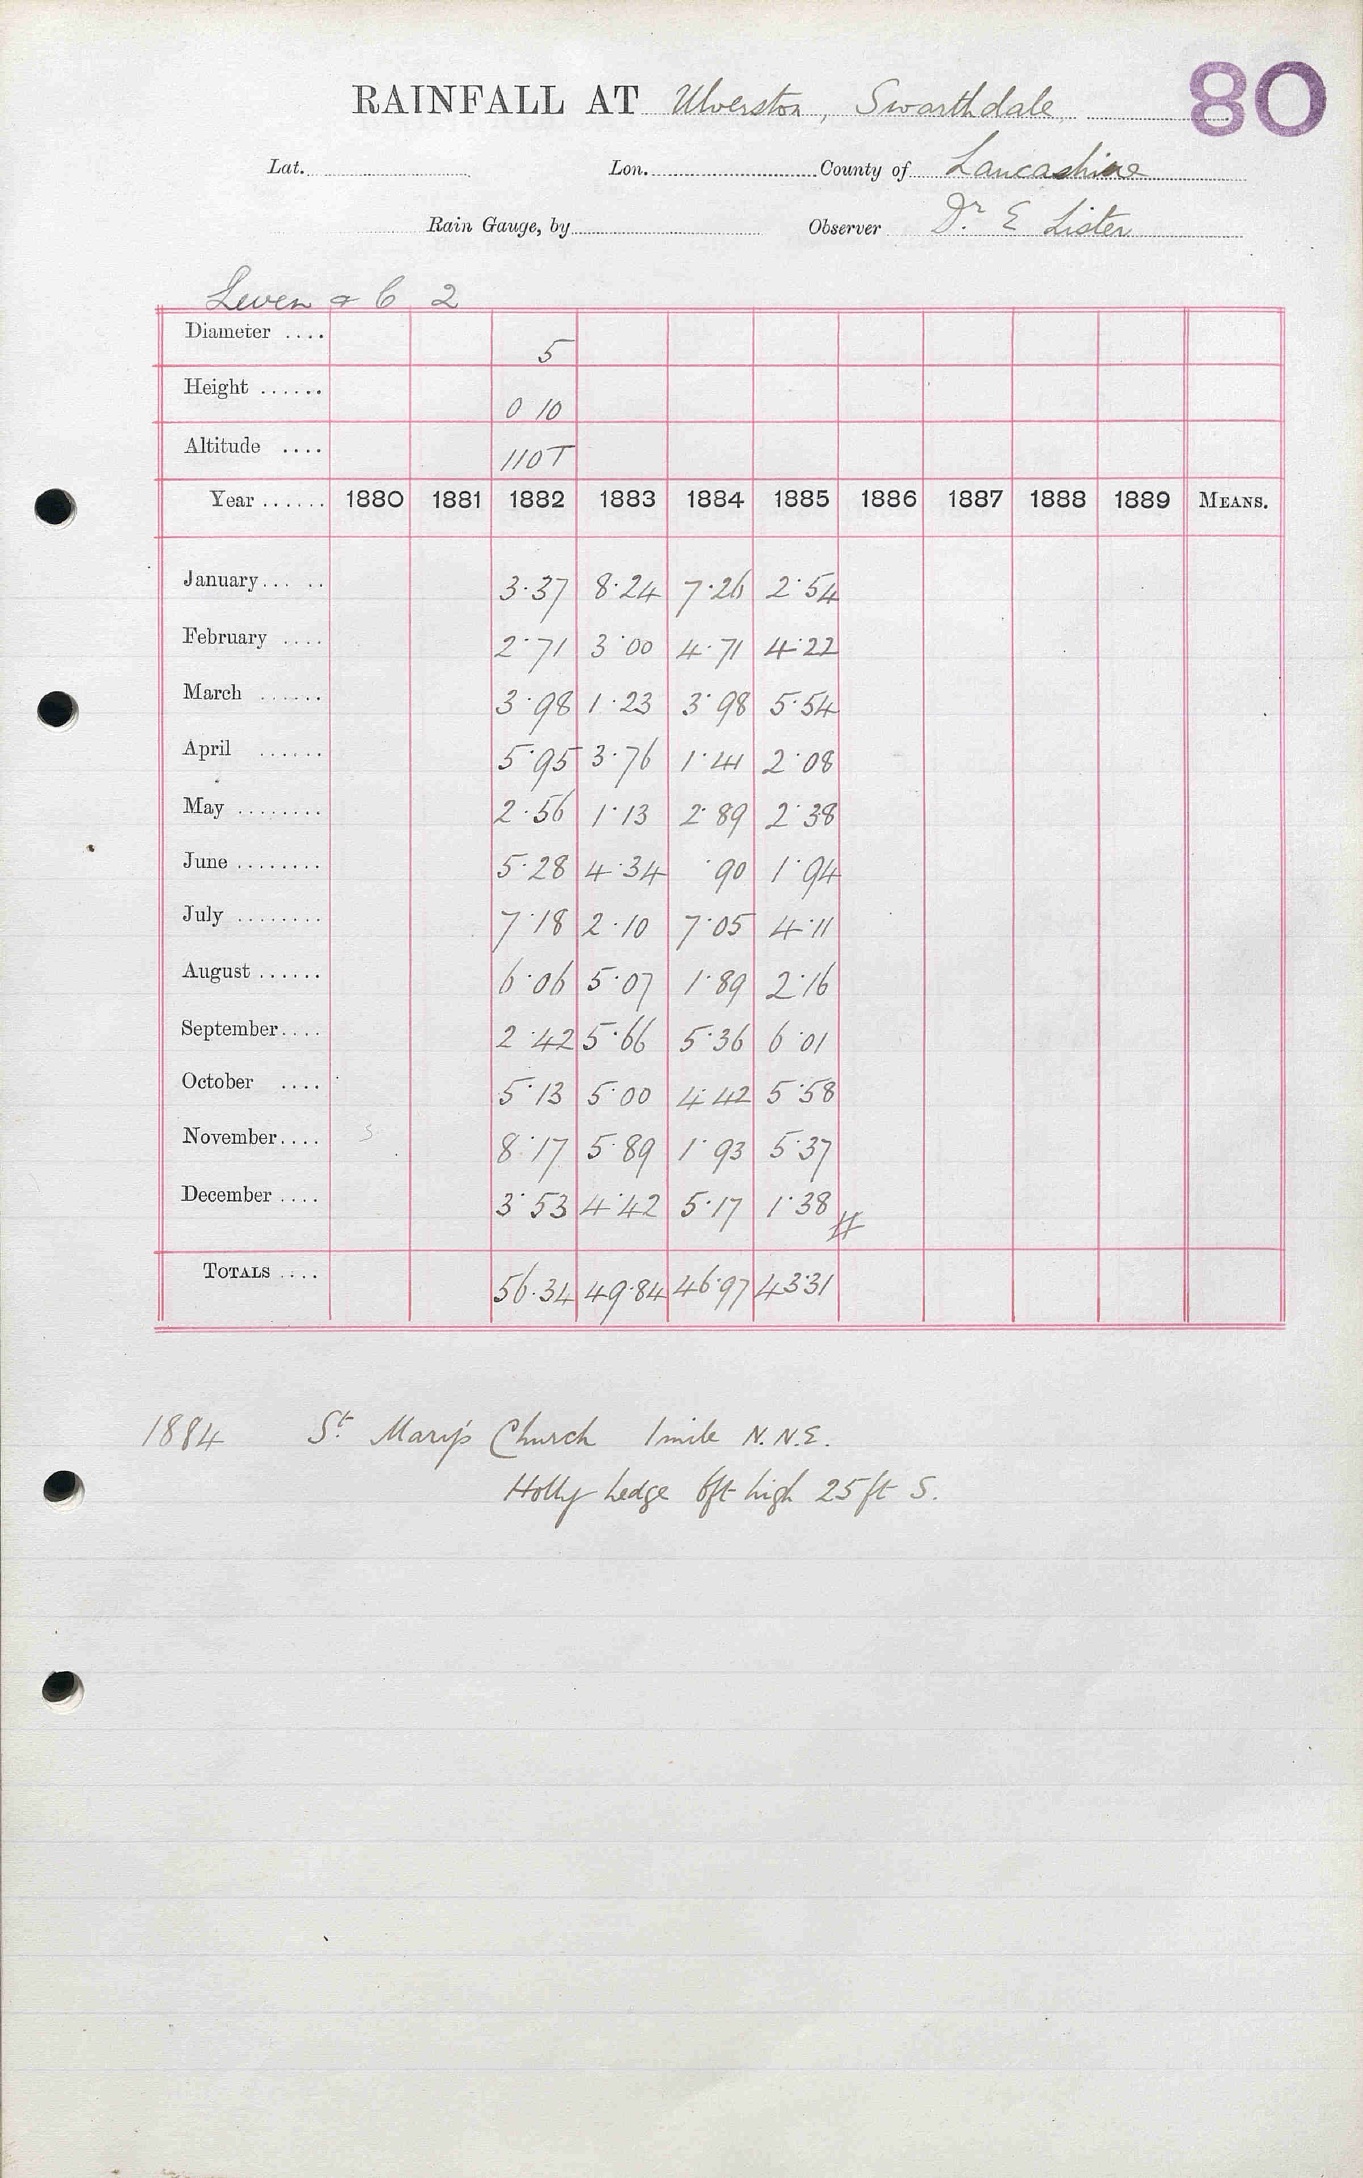 80
RAINFALL AT Ulverston, Swarthdale
Lat. Lon. County of Lancashire
Rain Gauge, by Observer Dr. E Lister
Leven & C 2
Diameter .... 5
Height ...... 0 10
Altitude .... 110T
Year ...... 1880 1881 1882 1883 1884 1885 1886 1887 1888 1889 MEANS.
January... .. 3·37 8·24 7·26 2·54
February .... 2·71 3·00 4·71 4·22
March ...... 3·98 1·23 3·98 5·54
April ...... 5·95 3·76 1·41 2·08
May ........ 2·56 1·13 2·89 2·38
June ........ 5·28 4·34 ·90 1·94
July ........ 7·18 2·10 7·05 4·11
August ...... 6·06 5·07 1·89 2·16
September.... 2·42 5·66 5·36 6·01
October .... 5·13 5·00 4·42 5·58
November.... 8·17 5·89 1·93 5·37
December .... 3·53 4·42 5·17 1·38
TOTALS .... 56·34 49·84 46·97 43·31
1884 St. Mary's Church 1 mile N.N.E.
Holly hedge 6ft high 25ft S.